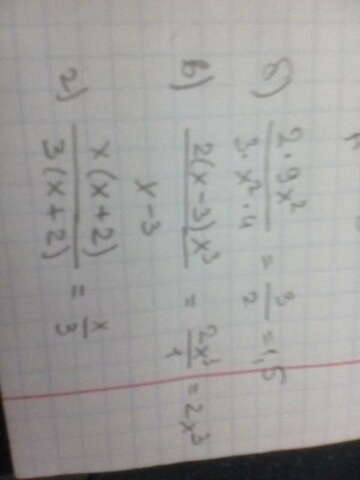 б) 2·9x² / 3·x²·4 = 3/2 = 1,5
в) 2(x-3)x³ / x-3 = 2x³/1 = 2x³
г) x(x+2) / 3(x+2) = x/3